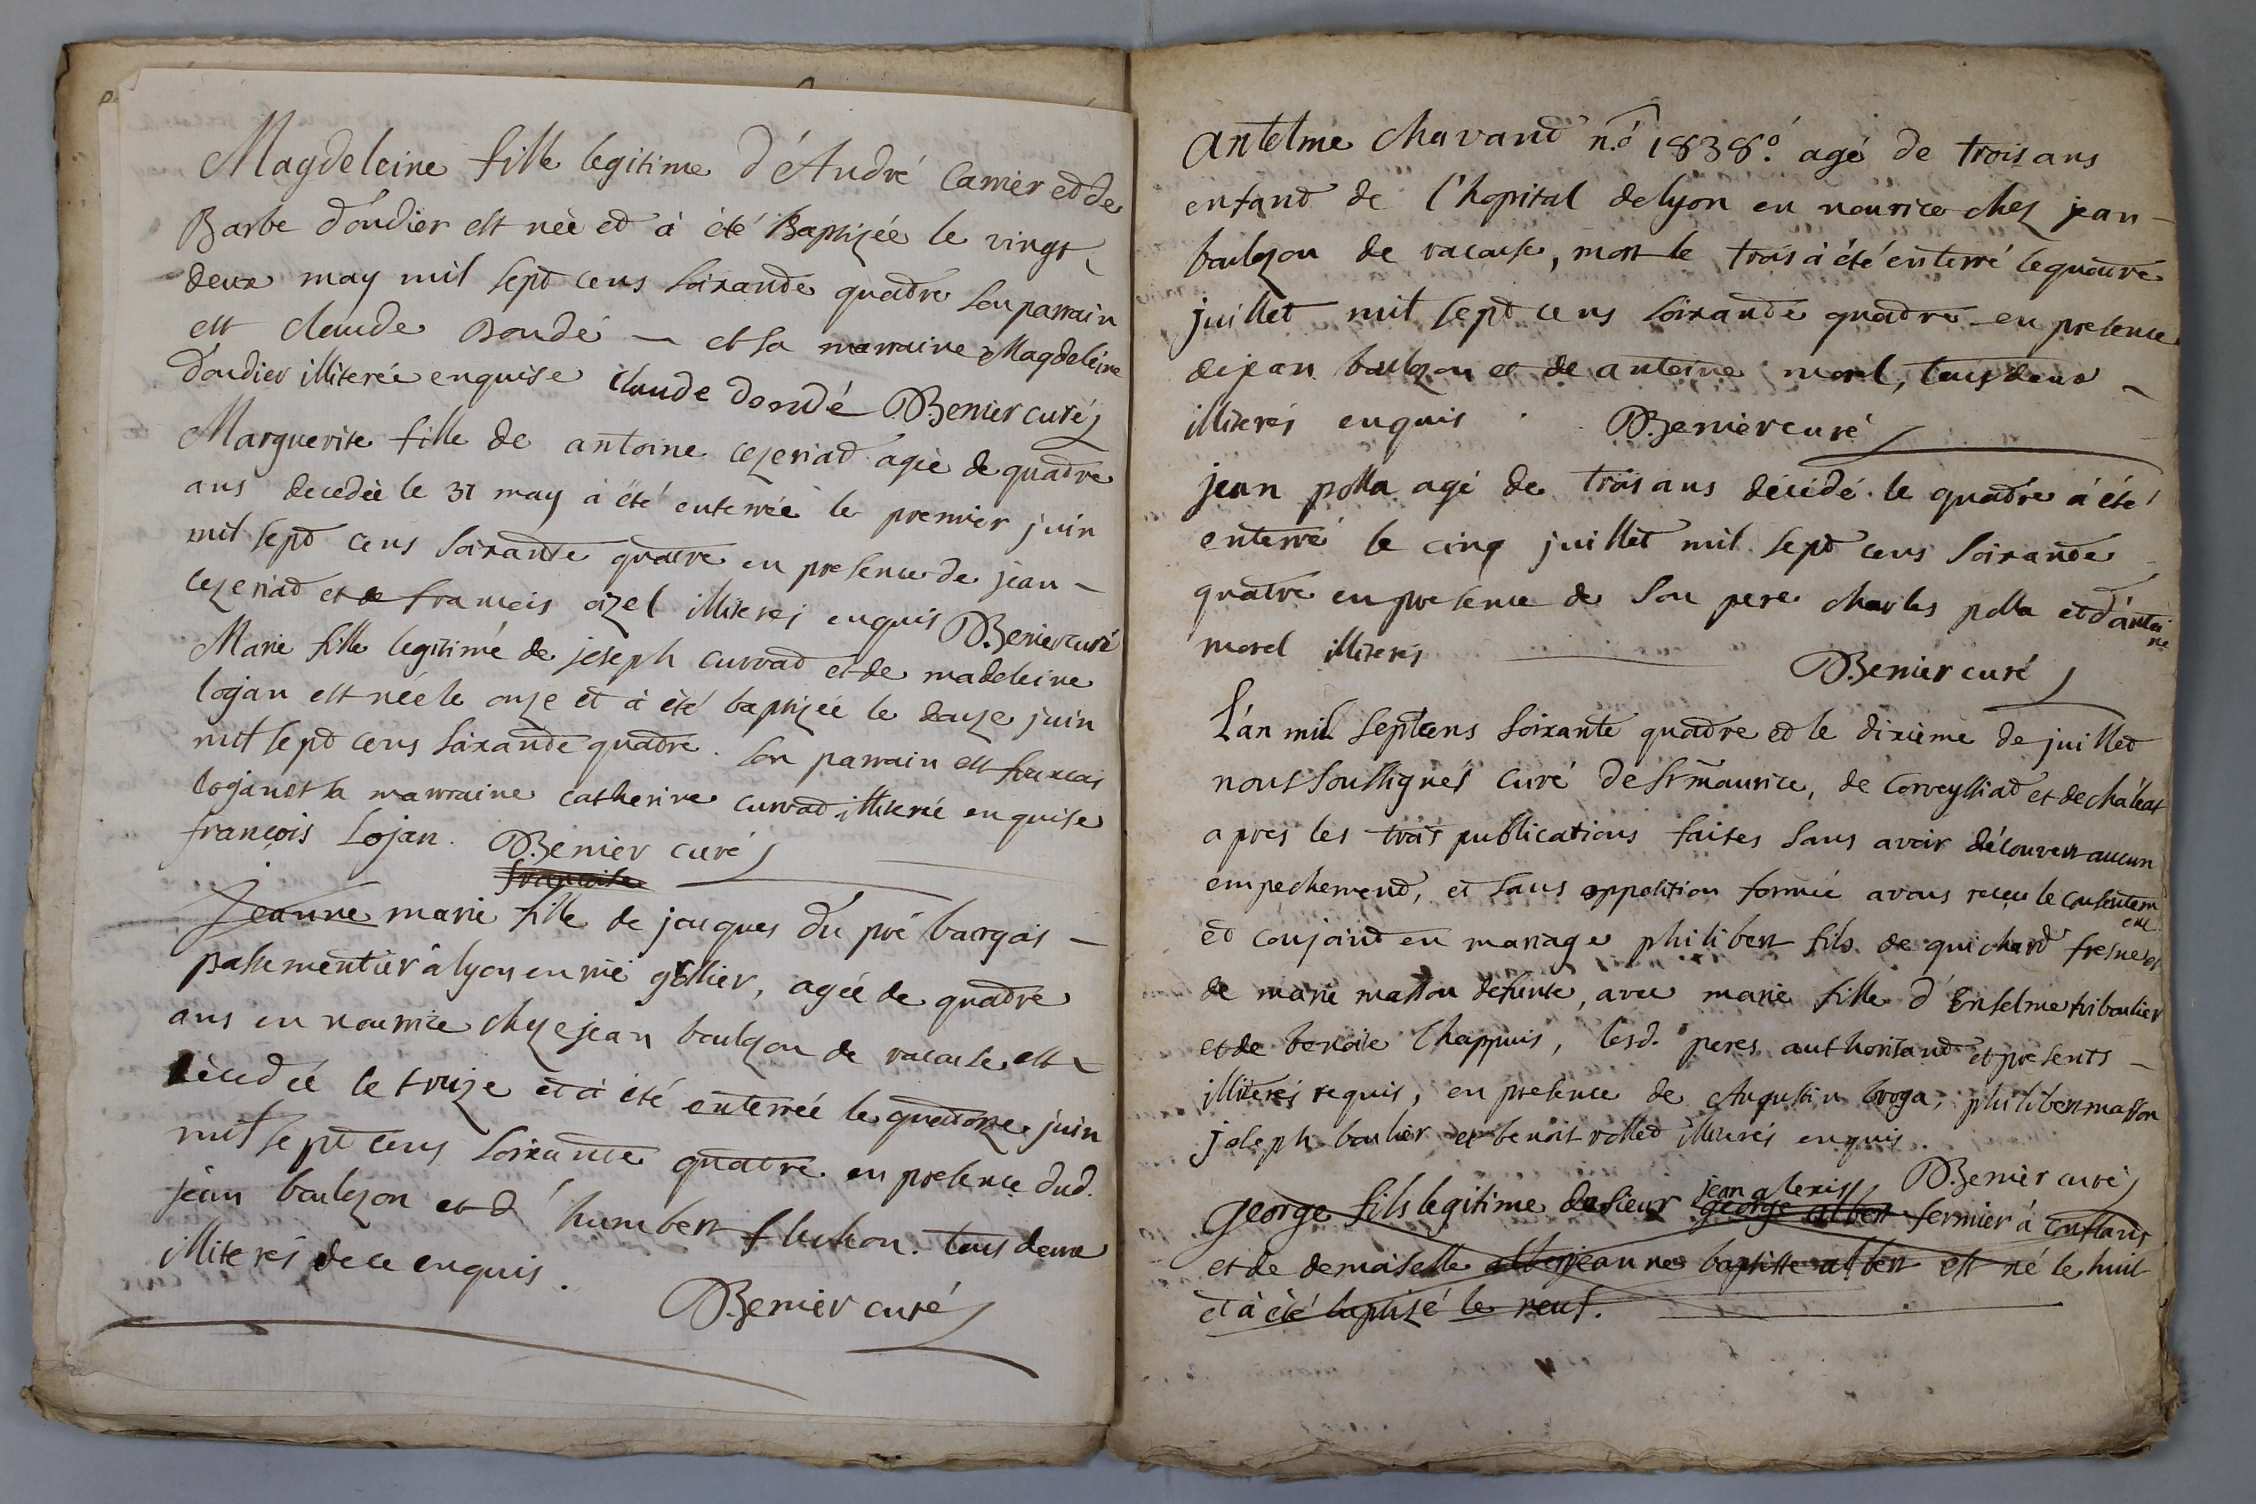 Magdeleine fille legitime d'André Carrier et de
Barbe d'oudier est née et à été Baptizée le vingt
deux may mil sept cens soixante quatre son parrain
est claude Dondé et sa marraine Magdeleine
d'oudier illiterée enquise claude dondé Benier curé
Marguerite fille de antoine cezeriat agée de quatre
ans decedée le 31 may à été enterrée le premier juin
mil sept cens soixante quatre en presence de jean
cezeriat et de francois oizel illiterés enquis Benier curé
Marie fille legitime de joseph curvat et de madeleine
lojan est née le onze et à été baptizée le douze juin
mil sept cens soixante quatre. son parrain est francois
lojan et sa marraine catherine curvat illiterée enquise
françois Lojan. Benier curé
francoise
Jeanne marie fille de jacques du pré bargois
passementier à lyon en rüe grollier, agée de quatre
ans en nourrice chez jean boulzon de vacause est
décedée le treize et à été enterrée le quatorze juin
mil sept cens soixante quatre en presence dud.
jean boulzon et d'humbert fluchon. tous deux
illiterés de ce enquis.
Benier curé
antelme chavand n.º 1838.º agé de trois ans
enfant de l'hopital de lyon en nourice chez jean
boulzon de vacause, mort le trois à été enterré le quatre
juillet mil sept cens soixante quatre en presence
de jean boulzon et de antoine morel, tous deux
illiterés enquis. Benier curé
jean polla agé de trois ans décédé le quatre à été
enterré le cinq juillet mil sept cens soixante
quatre en presence de son pere charles polla et d'antoine
morel illiterés
Benier curé
L'an mil sept cens soixante quatre et le dixieme de juillet
nous soussignés curé de St maurice, de Corveyssiat et de chaleat
apres les trois publications faites sans avoir découvert aucun
empechement, et sans opposition formée avons receu le consentement
et conjoint en mariage philibert fils de guichard fresne et
de marie masson défunte, avec marie fille d'Enselme triboulier
et de benoite Chappuis, lesd. peres authorisant et présents
illiterés requis, en presence de Augustin broga, philibert masson
joseph boulier et benoit rollet illiterés enquis.
Benier curé
george fils legitime de sieur george albert jean alexis fermier à conflans
et de demoiselle jeanne baptiste albert est né le huit
et à été baptizé le neuf.